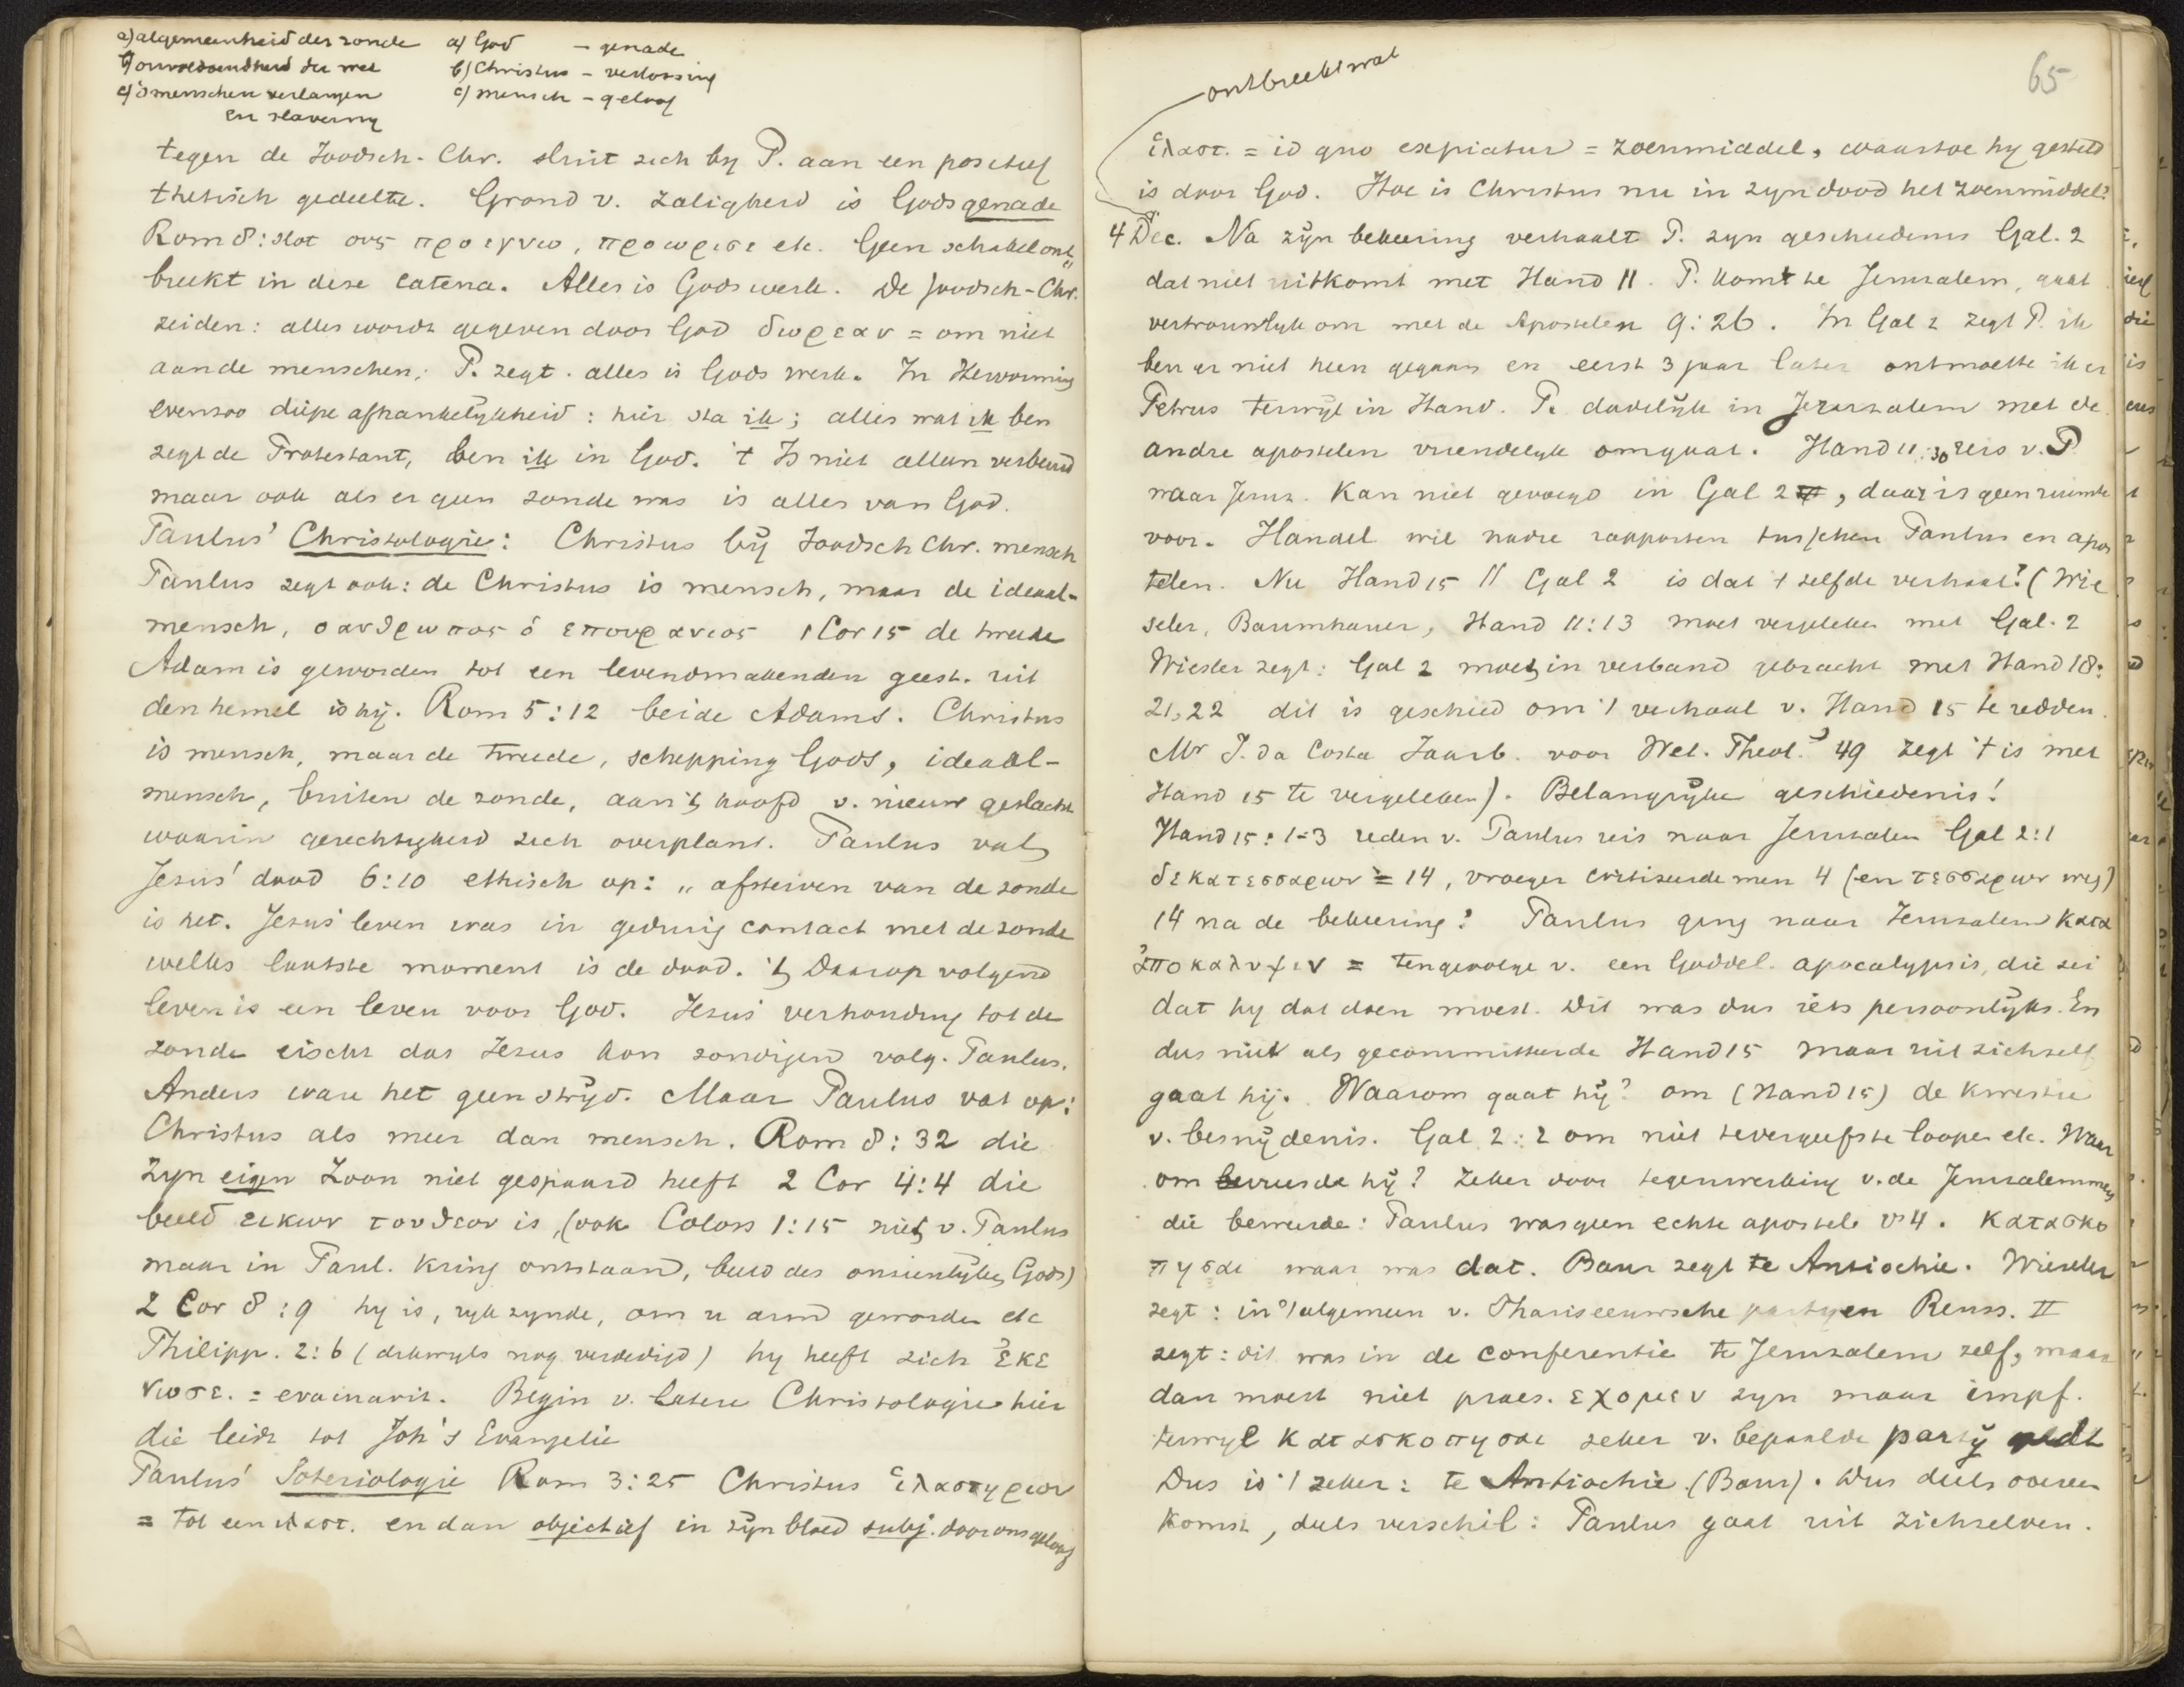 a) algemeenheid der zonde
b) onvoldoendheid der wet
c) 's menschen verlangen
en slaverny
a) God - genade
b) Christus - verlossing
c) mensch - geloof
tegen de Joodsch-Chr. sluit zich by P. aan een positief
thetisch gedeelte. Grond v. zaligheid is Gods genade
Rom 8: slot ους προεγνω, προωρισε etc. Geen schakel ont„
breekt in deze catena. Alles is Gods werk. De Joodsch-Chr.
zeiden: alles wordt gegeven door God δωρεαν = om niet
aan de menschen; P. zegt. alles is Gods werk. In Hervorming
evenzoo diepe afhankelykheid: hier sta ik; alles wat ik ben
zegt de Protestant, ben ik in God. 't Is niet alleen verbeurd
maar ook als er geen zonde was is alles van God.
Paulus' Christologie: Christus by Joodsch Chr. mensch
Paulus zegt ook: de Christus is mensch, maar de ideaal-
mensch, ο ανθρωπος ὁ επουρανιος 1 Cor 15 de tweede
Adam is geworden tot een levendmakenden geest. uit
den hemel is hy. Rom 5:12 beide Adams. Christus
is mensch, maar de tweede, schepping Gods, ideaal-
mensch, buiten de zonde, aan 't hoofd v. nieuw geslacht
waarin gerechtigheid zich overplant. Paulus vat
Jesus' dood 6:10 ethisch op: „ afsterven van de zonde
is het. Jesus' leven was in gedurig contact met de zonde
welks laatste moment is de dood. 't Daarop volgend
leven is een leven voor God. Jesus' verhouding tot de
zonde eischt dat Jesus kon zondigen volg. Paulus.
Anders ware het geen stryd. Maar Paulus vat op:
Christus als meer dan mensch. Rom 8:32 die
zyn eigen Zoon niet gespaard heeft 2 Cor 4:4 die
beeld εικων του θεου is, (ook Coloss 1:15 niet v. Paulus
maar in Paul. kring ontstaan, beeld des onzienlyken Gods)
2 Cor 8:9 hy is, ryk zynde, om u arm geworden etc
Philipp. 2:6 (dikwyls nog verdedigd) hy heeft zich ἐκε
νωσε. = evacuavit. Begin v. latere Christologie hier
die leidt tot Joh's Evangelie
Paulus' Soteriologie Rom 3:25 Christus ἱλαστηριον
= tot een ιλαστ. en dan objectief in zyn bloed subj. door ons geloof
ontbreekt wat
65
ἱλαστ. = id quo expiatur = zoenmiddel, waartoe hy gesteld
is door God. Hoe is Christus nu in zyn dood het zoenmiddel?
4 Dec. Na zyn bekeering verhaalt P. zyn geschiedenis Gal. 2
dat niet uitkomt met Hand 11. P. komt te Jeruzalem, gaat
vertrouwlyk om met de Apostelen 9:26. In Gal 2 zegt P. ik
ben er niet heen gegaan en eerst 3 jaar later ontmoette ik er
Petrus terwyl in Hand. P. dadelyk in Jeruzalem met de
andre apostelen vriendelyk omgaat. Hand 11:30 reis v. P
naar Jeruz. Kan niet gevoegd in Gal 2, daar is geen ruimte
voor. Handel wil nadre rapporten tusschen Paulus en apos
telen. Nu Hand 15 // Gal 2 is dat 't zelfde verhaal? (Wie
seler, Baumhauer, Hand 11:13 moet vergeleken met Gal. 2
Wieseler zegt: Gal 2 moet in verband gebracht met Hand 18:
21,22 dit is geschied om 't verhaal v. Hand 15 te redden.
Mr I. da Costa Jaarb. voor Wet. Theol. '49 zegt 't is met
Hand 15 te vergeleken). Belangryke geschiedenis!
Hand 15:1-3 reden v. Paulus reis naar Jeruzalem Gal 2:1
δεκατεσσαρων = 14, vroeger critiseerde men 4 (en τεσσαρων weg)
14 na de bekeering? Paulus ging naar Jeruzalem κατα
ἀποκαλυψιν = tengevolge v. een Goddel. apocalypsis, die zei
dat hy dat doen moest. Dit was dus iets persoonlyks. En
dus niet als gecommitteerde Hand 15 maar uit zichzelf
gaat hij. Waarom gaat hy? om (Hand 15) de kwestie
v. besnydenis. Gal 2:2 om niet tevergeefs te loopen etc. Waar
om vreesde hy? Zeker door tegenwerking v. de Jeruzalemmers
die beweerde: Paulus was geen echte apostel vs 4. κατασκο
πησαι waar was dat. Baur zegt te Antiochie. Wieseler
zegt: in 't algemeen v. Phariseeuwsche partyen Reuss. II
zegt: dit was in de conferentie te Jeruzalem zelf, maar
dan moest niet praes. εχομεν zyn maar impf.
terwyl κατασκοπησαι zeker v. bepaalde party geldt
Dus is 't zeker: te Antiochie (Baur). Dus deels overeen
komst, deels verschil: Paulus gaat uit zichzelven.